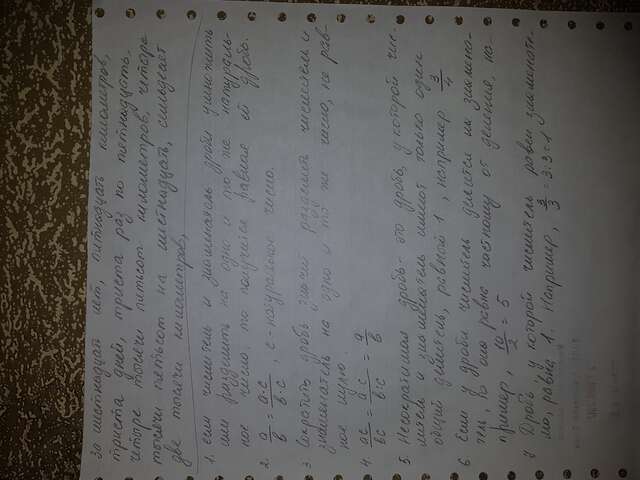 За шестнадцать лет, пятнадцать километров,
триста дней, триста раз по пятнадцать,
четыре тысячи пятьсот километров, четыре
тысячи пятьсот на шестнадцать, семьдесят
две тысячи километров,
1. если числитель и знаменатель дроби умножить
или разделить на одно и то же натураль-
ное число, то получится равная ей дробь.
2. a/b = a·c/b·c, c - натуральное число.
3. Сократить дробь значит разделить числитель и
знаменатель на одно и то же число, не рав-
ное нулю.
4. ac/bc = a·c/b·c = a/b
5. Несократимая дробь - это дробь, у которой чис-
литель и знаменатель имеют только один
общий делитель, равный 1, например 3/4
6. Если у дроби числитель делится на знамена-
тель, то она равна частному от деления, на-
пример, 10/2 = 5
7 Дробь, у которой числитель равен знаменате-
лю, равна 1. Например, 3/3 = 3:3 = 1